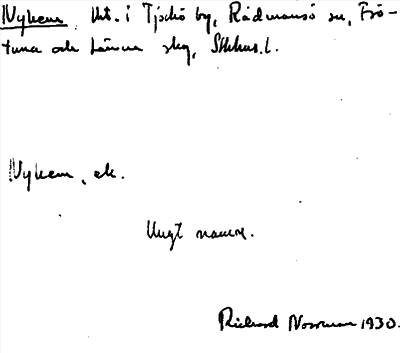 Nyhem Ht. i Tjockö by, Rådmansö sn, Frö-
tuna och Länna skg, Sthlms l.
Nyhem, ek.
Ungt namn.
Richard Norrman 1930.